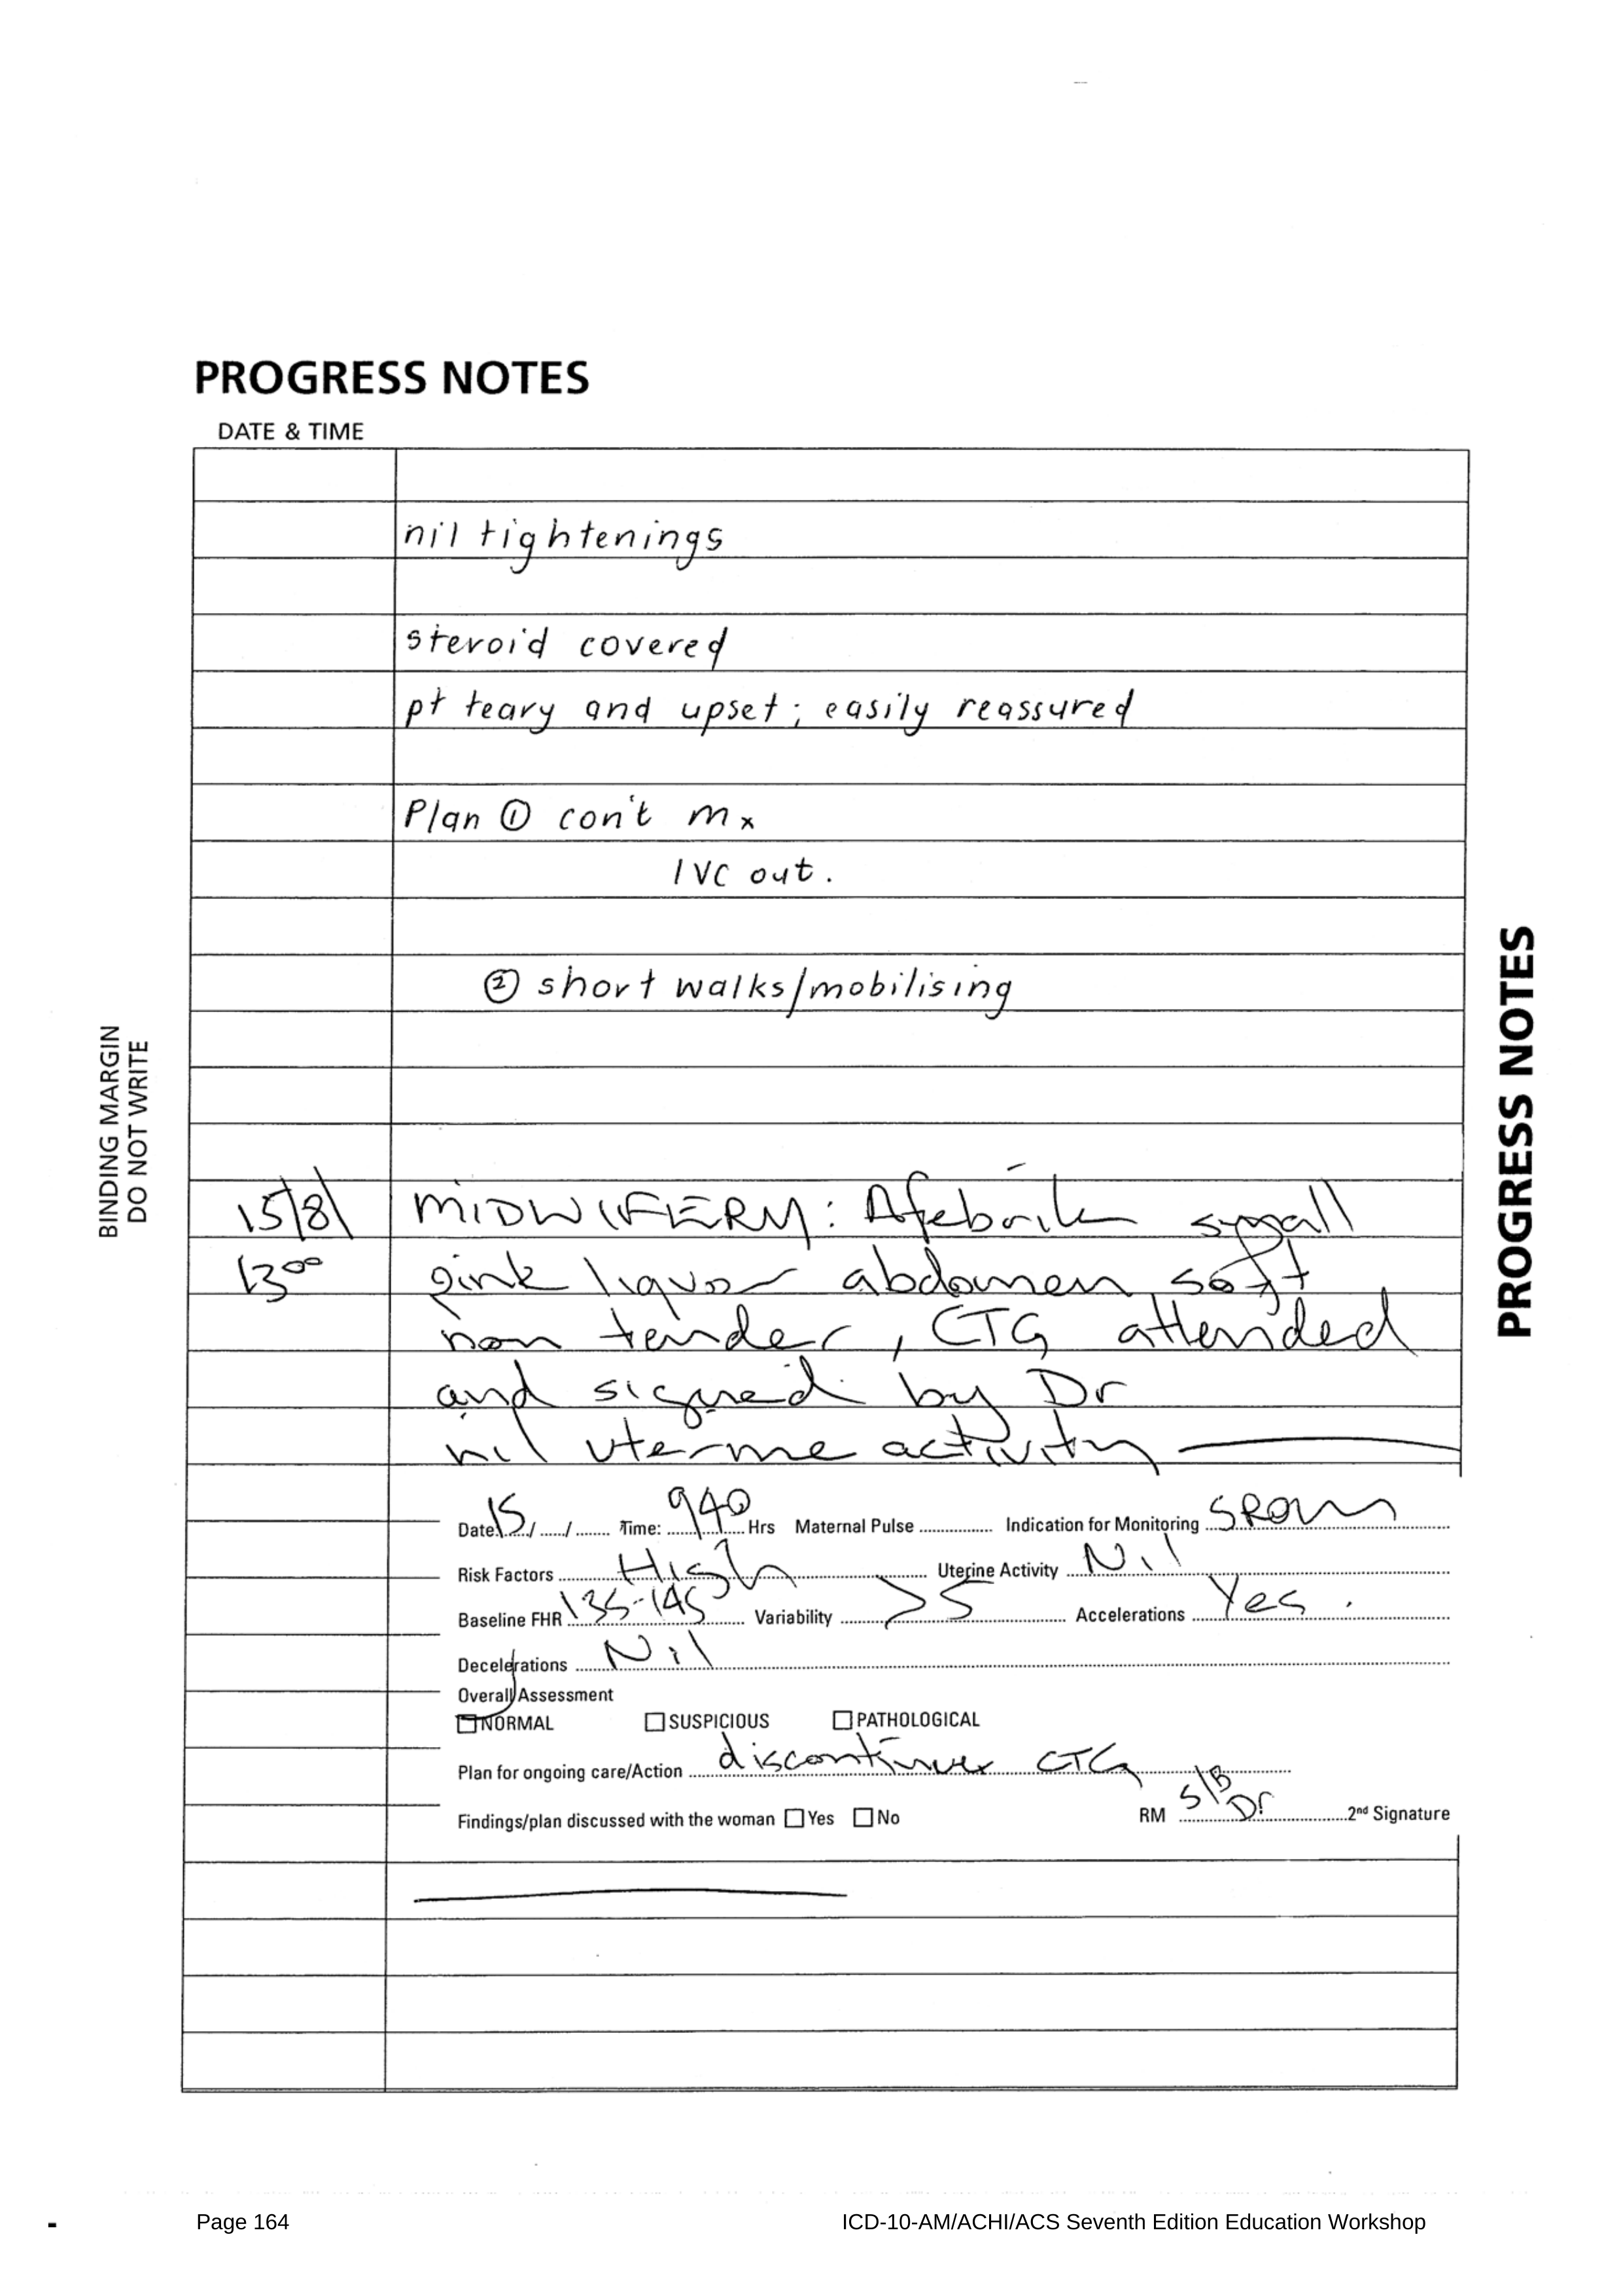 PROGRESS NOTES
DATE & TIME
nil tightenings
steroid covered
pt teary and upset; easily reassured
Plan ① con't mx
IVC out.
② short walks/mobilising
BINDING MARGIN
DO NOT WRITE
PROGRESS NOTES
15/8/ MIDWIFERY: Afebrile small
13⁰⁰ pink liquor abdomen soft
non tender, CTG attended
and signed by Dr
nil uterine activity
Date: 15 / ..... / ........ Time: 940 Hrs Maternal Pulse ............... Indication for Monitoring SROM
Risk Factors High Uterine Activity Nil
Baseline FHR 135-145 Variability >5 Accelerations Yes.
Decelerations Nil
Overall Assessment
NORMAL SUSPICIOUS PATHOLOGICAL
Plan for ongoing care/Action discontinue CTG
Findings/plan discussed with the woman Yes No RM S/B Dr 2nd Signature
Page 164 ICD-10-AM/ACHI/ACS Seventh Edition Education Workshop